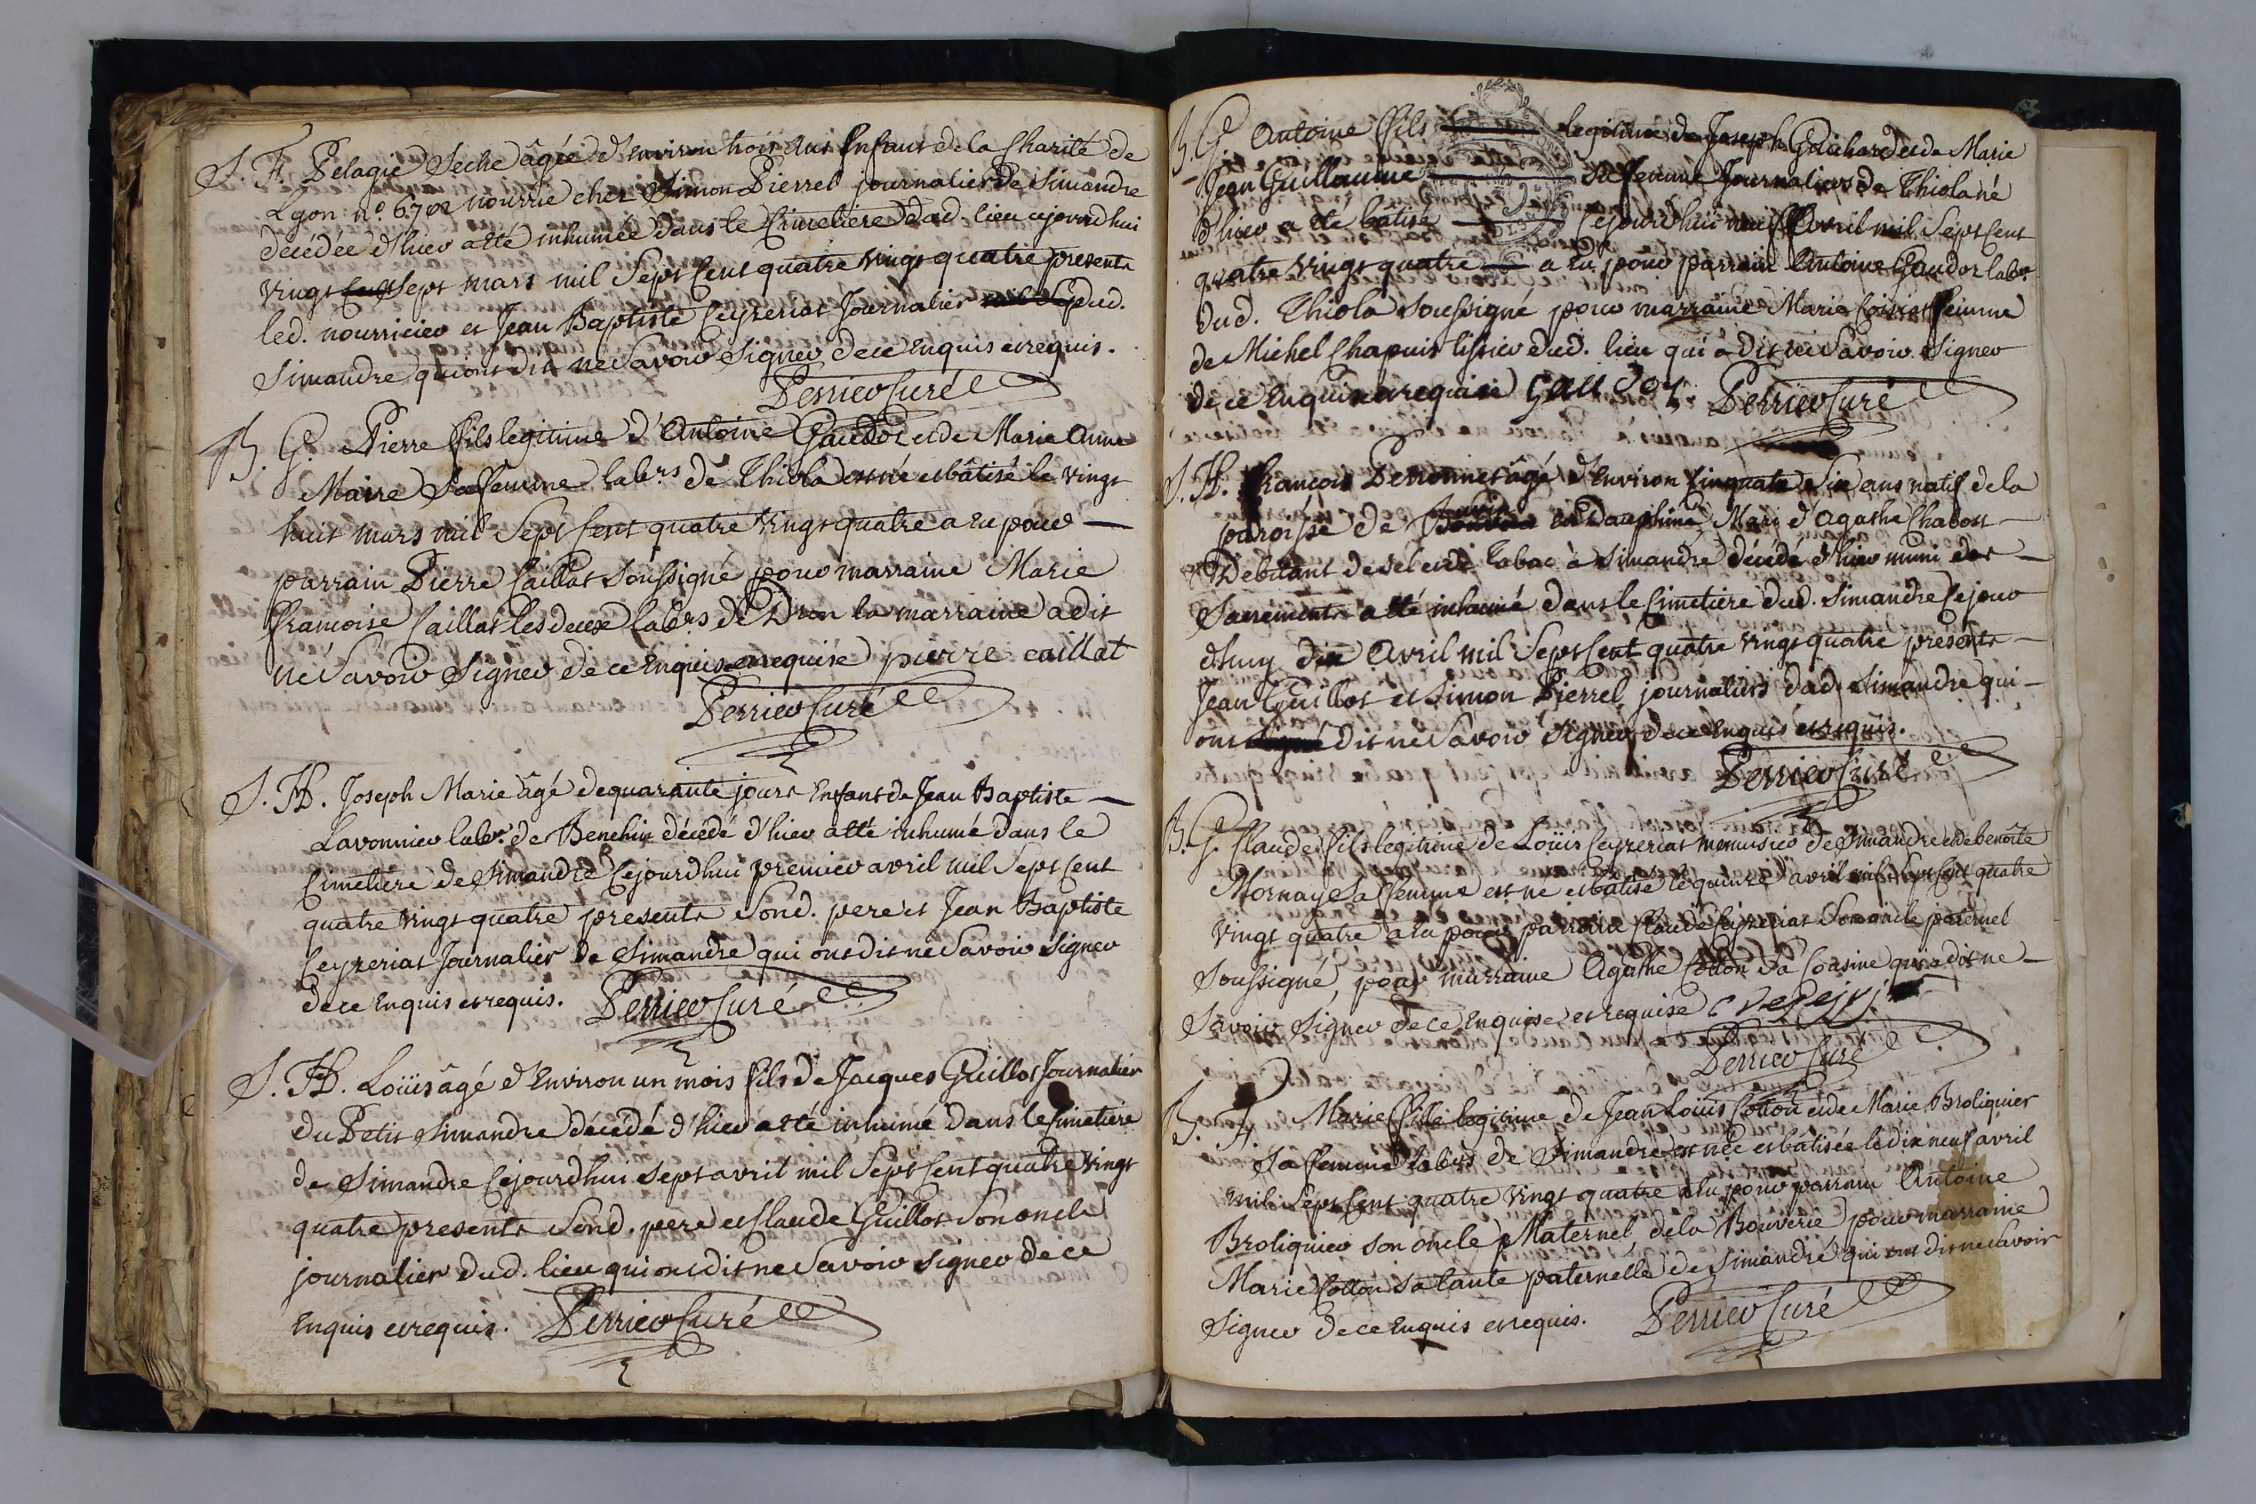 S. F. Pelagie Seche âgée d'Environ trois Ans Enfant de la Charité de
Lyon n.° 6702 nourrie chez Simon Pierrel journalier de Simandre
décédée d'hier a été inhumée dans le Cimetière dud. lieu cejourdhui
vingt sept mars mil Sept Cent quatre vingt quatre présents
led. nourricier et Jean Baptiste Ceyzeriat Journalier dud.
Simandre qui ont dit ne Savoir Signer de ce Enquis et requis.
Perrier Curé
B. G. Pierre fils legitime d'Antoine Gaudoz et de Marie Anne
Maire Sa femme lab.rs de Thiola est né et bâtisé le vingt
huit mars mil Sept Cent quatre vingt quatre a Eu pour
parrain Pierre Caillat Soussigné pour marraine Marie
francoise Caillat les deux lab.rs de Dron la marraine a dit
ne Savoir Signer de ce Enquise et requise pierre caillat
Perrier Curé
S. H. Joseph Marie âgé de quarante jours Enfant de Jean Baptiste
Lavonnier lab.r de Benehin décédé d'hier a été inhumé dans le
Cimetière de Simandre Cejourdhui premier avril mil Sept Cent
quatre vingt quatre présents Sond. pere et Jean Baptiste
Ceyzeriat Journalier de Simandre qui ont dit ne Savoir Signer
de ce Enquis et requis. Perrier Curé
S. H. Loüis âgé d'Environ un mois fils de Jacques Guillot Journalier
du Petit Simandre décédé d'hier a été inhumé dans le Cimetiere
de Simandre Cejourdhui Sept avril mil Sept Cent quatre vingt
quatre présents Sond. pere et Claude Guillot Son oncle
journalier dud. lieu qui ont dit ne Savoir Signer de ce
Enquis et requis. Perrier Curé
B. G. Antoine fils legitime de Joseph Guichard et de Marie
Jean Guillaume Sa femme Journaliers de Thiola né
d'hier a été batisé Cejourdhui neuf Avril mil Sept Cent
quatre vingt quatre a Eu pour parrain Antoine Gaudoz lab.r
dud. Thiola Soussigné pour marraine Marie femme
de Michel Chapuis tissier dud. lieu qui a dit ne Savoir Signer
de ce Enquise et requise Gaudoz Perrier Curé
S. H. François Perronnet âgé d'Environ Cinquante Six ans natif de la
paroisse de en Dauphiné, Mari d'agathe Chabost
Debitant de Sel et de Tabac à Simandre décédé d'hier muni des
Sacrements a été inhumé dans le Cimetiere dud. Simandre Cejour
dhuy dix Avril mil Sept Cent quatre vingt quatre présents
Jean Guillot et Simon Pierrel journaliers dud. Simandre qui
ont dit ne Savoir Signer, de ce Enquis et requis.
Perrier Curé
B. G. Claude fils legitime de Loüis Ceyzeriat menuisier de Simandre et de benoîte
Mornay Sa femme est né et batisé le quinze avril mil Sept Cent quatre
vingt quatre a eu pour parrain Claude Ceyzeriat Son oncle paternel
Soussigné, pour marraine Agathe Cotton Sa Cousine qui a dit ne
Savoir Signer de ce Enquise et requise
Perrier Curé
B. F. Marie fille legitime de Jean Loüis Cotton et de Marie Broliquier
Sa femme lab.rs de Simandre est née et batisée le dix neuf avril
mil Sept Cent quatre vingt quatre a Eu pour parrain Antoine
Broliquier Son oncle Maternel de la Bouverie pour marraine
Marie Cotton Sa tante paternelle de Simandre qui ont dit ne Savoir
Signer de ce Enquis et requis. Perrier Curé